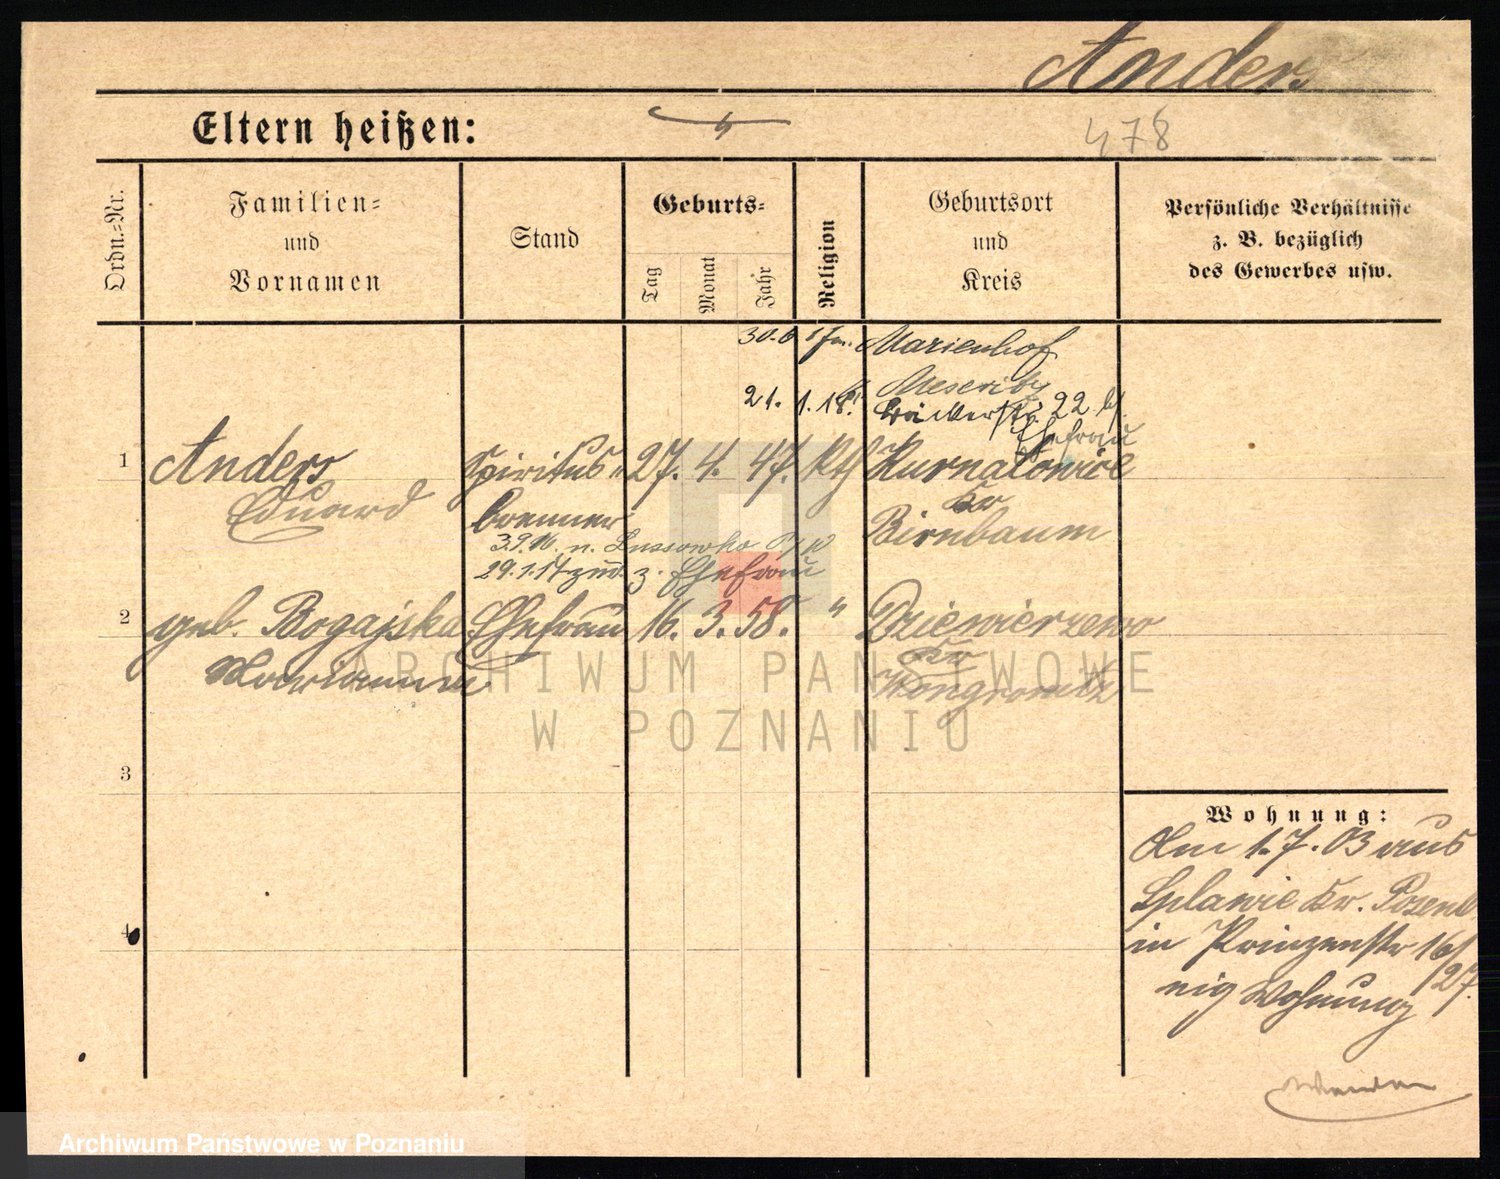 Anders
Eltern heißen:
478
Ordn.-Nr.
Familien-
und
Vornamen
Stand
Geburts-
Tag
Monat
Jahr
Religion
Geburtsort
und
Kreis
Persönliche Verhältnisse
z. B. bezüglich
des Gewerbes usw.
30.6 17 Marienhof
21. 1. 18. Meseritz
22
Ehefrau
1 Anders Spiritus- 27. 4. 47. Kth Kurnatowice
Eduard brenner Kr
Birnbaum
3.9.16 n. Lussowko
29.1.17 zur. z. Ehefrau
2 geb. Bogajska Ehefrau 16. 3. 58. " Dziewierzewo
Marianna Kr
Wongrowitz
ARCHIWUM PAŃSTWOWE
W POZNANIU
3
4
Wohnung:
Am 1.7.03 aus
Splawie Kr. Posen
in Prinzenstr 16/
27.
eig Wohnung
Archiwum Państwowe w Poznaniu